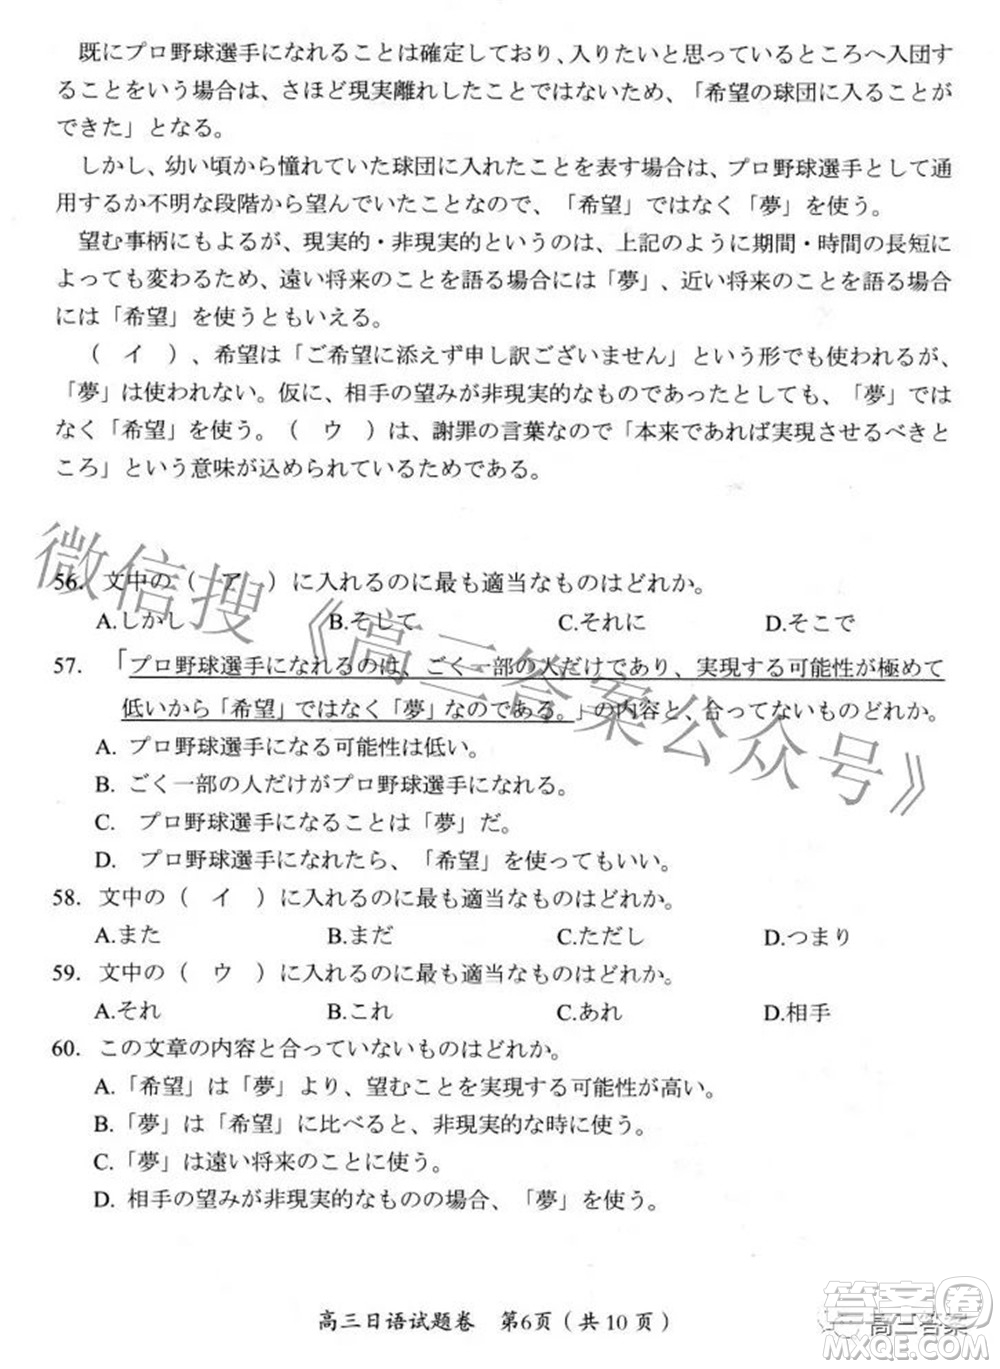 既にプロ野球選手になれることは確定しており、入りたいと思っているところへ入団す
ることをいう場合は、さほど現実離れしたことではないため、「希望の球団に入ることが
できた」となる。
しかし、幼い頃から憧れていた球団に入れたことを表す場合は、プロ野球選手として通
用するか不明な段階から望んでいたことなので、「希望」ではなく「夢」を使う。
望む事柄にもよるが、現実的・非現実的というのは、上記のように期間・時間の長短に
よっても変わるため、遠い将来のことを語る場合には「夢」、近い将来のことを語る場合
には「希望」を使うともいえる。
（　イ　）、希望は「ご希望に添えず申し訳ございません」という形でも使われるが、
「夢」は使われない。仮に、相手の望みが非現実的なものであったとしても、「夢」では
なく「希望」を使う。（　ウ　）は、謝罪の言葉なので「本来であれば実現させるべきと
ころ」という意味が込められているためである。
56. 文中の（　ア　）に入れるのに最も適当なものはどれか。
A.しかし B.そして C.それに D.そこで
57. 「プロ野球選手になれるのは、ごく一部の人だけであり、実現する可能性が極めて
低いから「希望」ではなく「夢」なのである。」の内容と、合ってないものどれか。
A. プロ野球選手になる可能性は低い。
B. ごく一部の人だけがプロ野球選手になれる。
C. プロ野球選手になることは「夢」だ。
D. プロ野球選手になれたら、「希望」を使ってもいい。
58. 文中の（　イ　）に入れるのに最も適当なものはどれか。
A.また B.まだ C.ただし D.つまり
59. 文中の（　ウ　）に入れるのに最も適当なものはどれか。
A.それ B.これ C.あれ D.相手
60. この文章の内容と合っていないものはどれか。
A.「希望」は「夢」より、望むことを実現する可能性が高い。
B.「夢」は「希望」に比べると、非現実的な時に使う。
C.「夢」は遠い将来のことに使う。
D. 相手の望みが非現実的なものの場合、「夢」を使う。
高三日语试题卷　第6页（共10页）
微信搜《高三答案公众号》
答案圈
高三答案
MXQE.COM